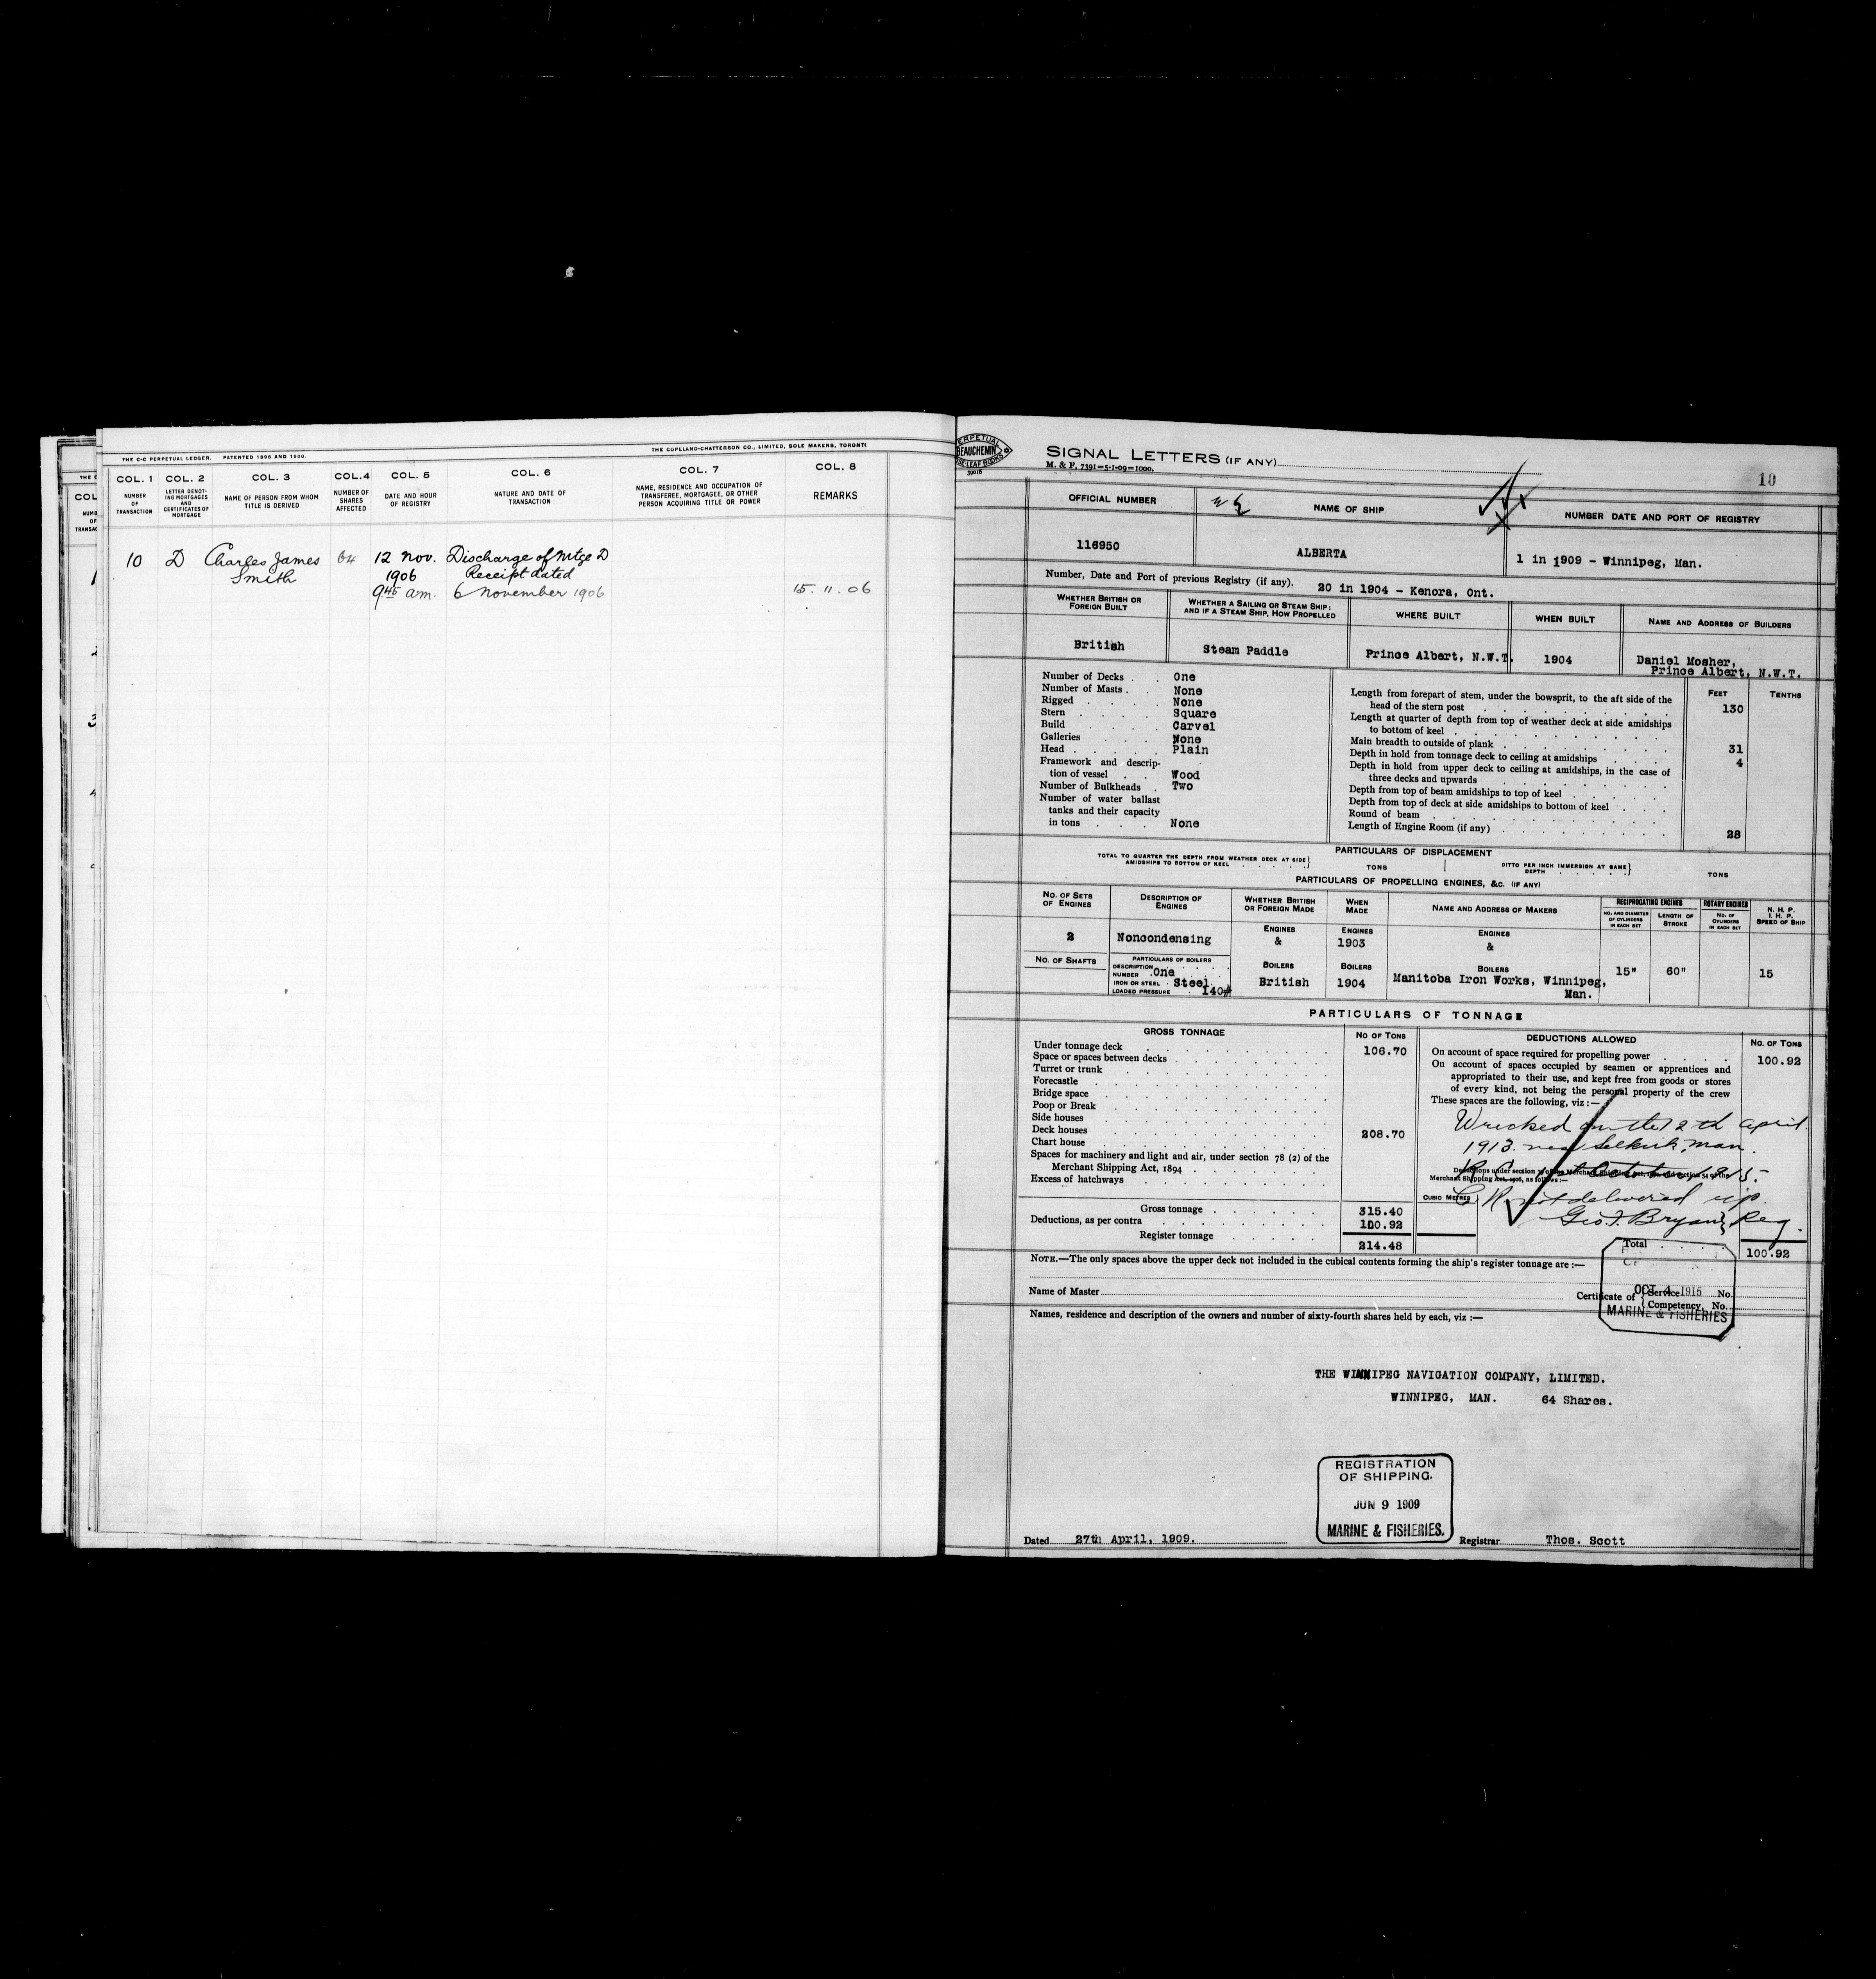 THE C-C PERPETUAL LEDGER. PATENTED 1896 AND 1900.
THE COPELAND-CHATTERSON CO., LIMITED, SOLE MAKERS, TORONTO
COL. 1 COL. 2 COL. 3 COL. 4 COL. 5 COL. 6 COL. 7 COL. 8
NUMBER OF TRANSACTION
LETTER DENOTING MORTGAGES AND CERTIFICATES OF MORTGAGE
NAME OF PERSON FROM WHOM TITLE IS DERIVED
NUMBER OF SHARES AFFECTED
DATE AND HOUR OF REGISTRY
NATURE AND DATE OF TRANSACTION
NAME, RESIDENCE AND OCCUPATION OF TRANSFEREE, MORTGAGEE, OR OTHER PERSON ACQUIRING TITLE OR POWER
REMARKS
10 D Charles James 64 12 Nov. Discharge of Mtge D
Smith 1906 Receipt dated
9.45 a.m. 6 November 1906 15.11.06
PERPETUAL
BEAUCHEMIN
LOOSE LEAF BOOKS
39016
SIGNAL LETTERS (IF ANY)
M. & F. 7391=5-1-09=1000.
10
OFFICIAL NUMBER
NAME OF SHIP
NUMBER DATE AND PORT OF REGISTRY
116950
ALBERTA
1 in 1909 - Winnipeg, Man.
Number, Date and Port of previous Registry (if any). 20 in 1904 - Kenora, Ont.
WHETHER BRITISH OR FOREIGN BUILT
WHETHER A SAILING OR STEAM SHIP; AND IF A STEAM SHIP, HOW PROPELLED
WHERE BUILT
WHEN BUILT
NAME AND ADDRESS OF BUILDERS
British
Steam Paddle
Prince Albert, N.W.T.
1904
Daniel Mosher,
Prince Albert, N.W.T.
Number of Decks . . One
Number of Masts . . None
Rigged . . . . None
Stern . . . . Square
Build . . . . Carvel
Galleries . . . None
Head . . . . . Plain
Framework and description of vessel . . Wood
Number of Bulkheads . Two
Number of water ballast tanks and their capacity in tons . . . None
FEET TENTHS
Length from forepart of stem, under the bowsprit, to the aft side of the head of the stern post 130
Length at quarter of depth from top of weather deck at side amidships to bottom of keel
Main breadth to outside of plank 31
Depth in hold from tonnage deck to ceiling at amidships 4
Depth in hold from upper deck to ceiling at amidships, in the case of three decks and upwards
Depth from top of beam amidships to top of keel
Depth from top of deck at side amidships to bottom of keel
Round of beam
Length of Engine Room (if any) 28
PARTICULARS OF DISPLACEMENT
TOTAL TO QUARTER THE DEPTH FROM WEATHER DECK AT SIDE AMIDSHIPS TO BOTTOM OF KEEL TONS
DITTO PER INCH IMMERSION AT SAME DEPTH TONS
PARTICULARS OF PROPELLING ENGINES, &C. (IF ANY)
NO. OF SETS OF ENGINES
DESCRIPTION OF ENGINES
WHETHER BRITISH OR FOREIGN MADE
WHEN MADE
NAME AND ADDRESS OF MAKERS
RECIPROCATING ENGINES
NO. AND DIAMETER OF CYLINDERS IN EACH SET
LENGTH OF STROKE
ROTARY ENGINES
NO. OF CYLINDERS IN EACH SET
N. H. P.
I. H. P.
SPEED OF SHIP
2
Noncondensing
ENGINES
&
BOILERS
British
ENGINES
1903
BOILERS
1904
ENGINES
&
BOILERS
Manitoba Iron Works, Winnipeg,
Man.
15" 60" 15
NO. OF SHAFTS
PARTICULARS OF BOILERS
DESCRIPTION
NUMBER One
IRON OR STEEL Steel
LOADED PRESSURE 140#
PARTICULARS OF TONNAGE
GROSS TONNAGE NO OF TONS
Under tonnage deck 106.70
Space or spaces between decks
Turret or trunk
Forecastle
Bridge space
Poop or Break
Side houses
Deck houses 208.70
Chart house
Spaces for machinery and light and air, under section 78 (2) of the Merchant Shipping Act, 1894
Excess of hatchways
Gross tonnage 315.40
Deductions, as per contra 100.92
Register tonnage 214.48
DEDUCTIONS ALLOWED NO. OF TONS
On account of space required for propelling power 100.92
On account of spaces occupied by seamen or apprentices and appropriated to their use, and kept free from goods or stores of every kind, not being the personal property of the crew
These spaces are the following, viz :—
Wrecked on the 12th April
1913 near Selkirk, Man.
Deductions under section 79 of the Merchant Shipping Act, 1894, and section 54 of the Merchant Shipping Act, 1906, as follows :—
CUBIC METRES
C R not delivered up.
Geo. F. Bryan Reg.
Total 100.92
NOTE.—The only spaces above the upper deck not included in the cubical contents forming the ship's register tonnage are :—
OCT 4 1915
MARINE & FISHERIES
Name of Master
Certificate of Service No.
Competency, No.
Names, residence and description of the owners and number of sixty-fourth shares held by each, viz :—
THE WINNIPEG NAVIGATION COMPANY, LIMITED.
WINNIPEG, MAN. 64 Shares.
REGISTRATION
OF SHIPPING.
JUN 9 1909
MARINE & FISHERIES.
Dated 27th April, 1909.
Registrar Thos. Scott